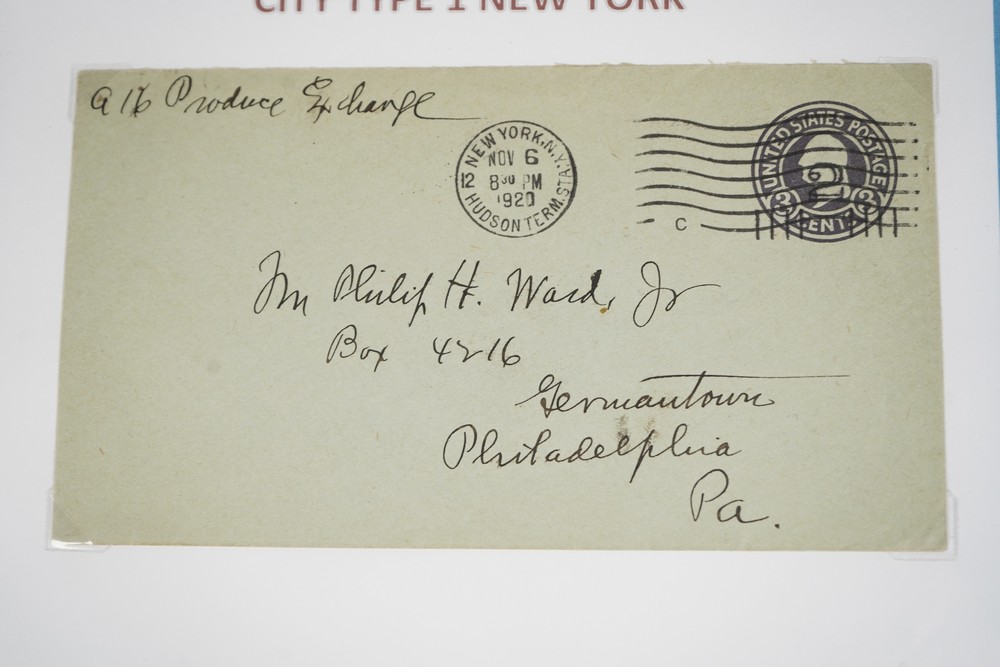 CITY TYPE 1 NEW YORK
A 16 Produce Exchange
NEW YORK, N.Y.
NOV 6
12 8 30 PM
1920
HUDSON TERM. STA.
C
UNITED STATES POSTAGE
2 CENTS 2
Mr Philip H. Ward, Jr
Box 4216
Germantown
Philadelphia
Pa.